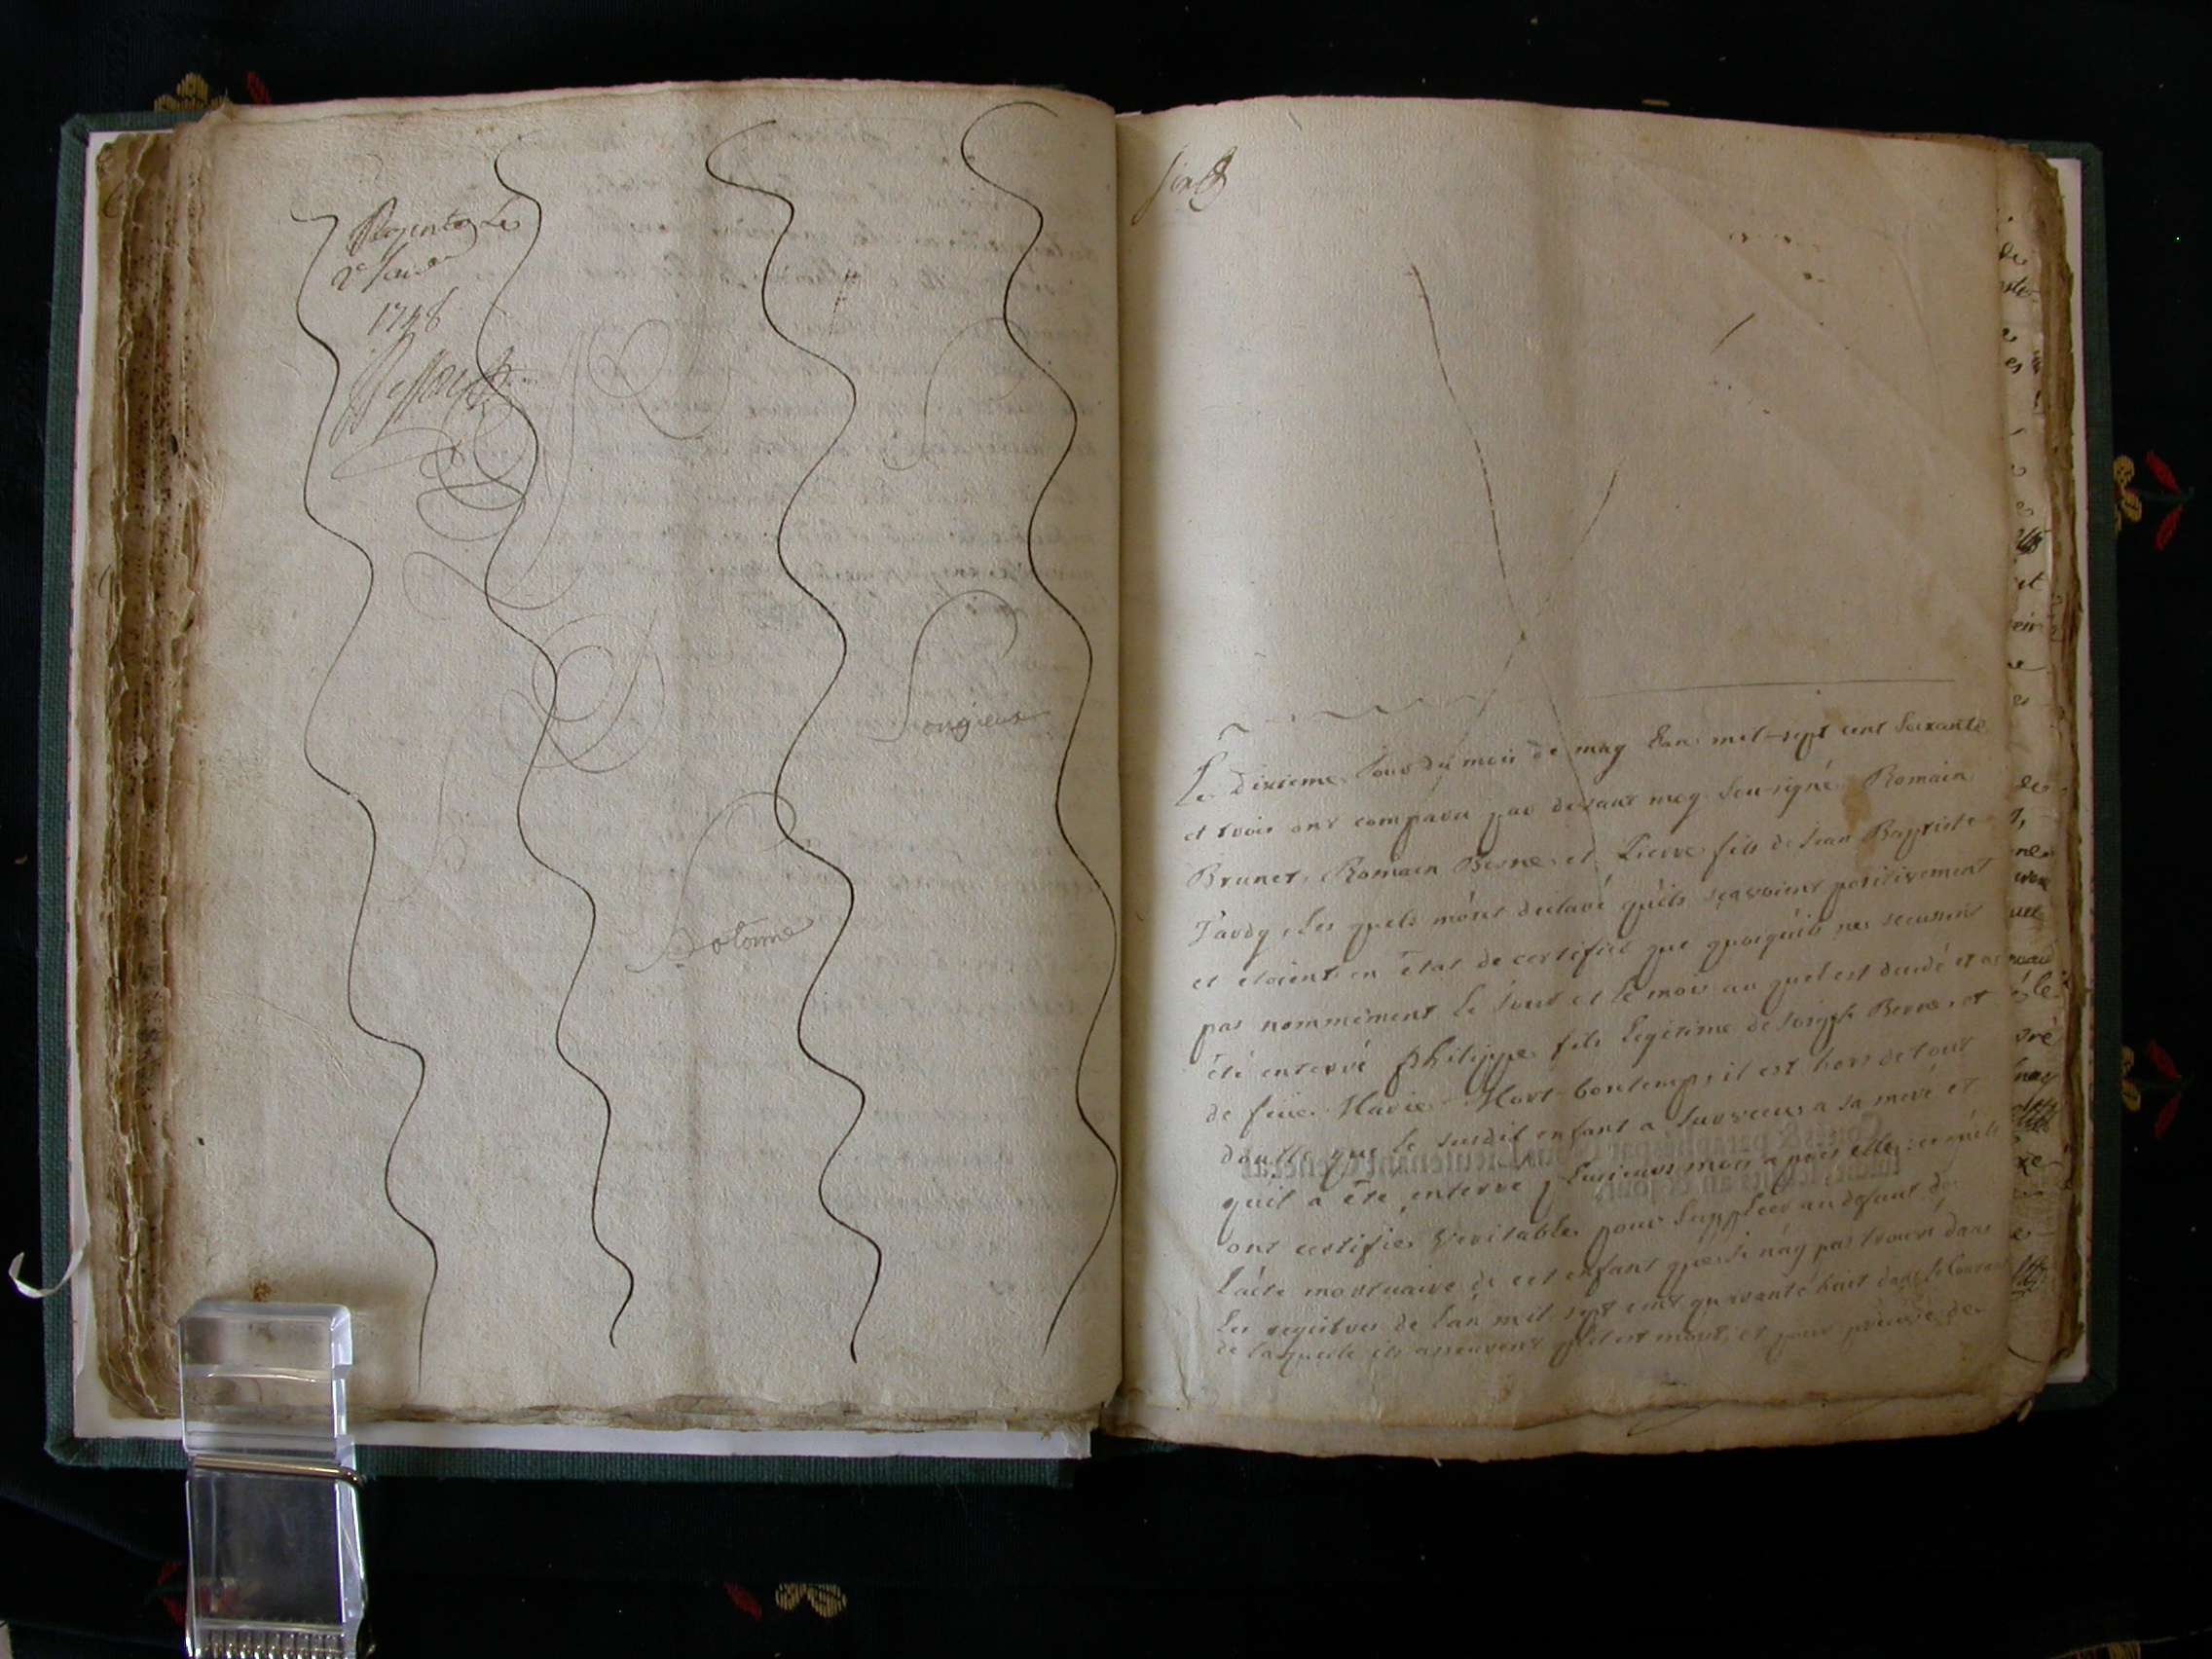 1748
Songieux
Dotonne
Le dixieme Jour du mois de may L'an mil-sept cent Soixante
et trois ont comparu par devant moy Sousigné Romain
Brunet, Romain Berne et Pierre fils de Jean Baptiste
Tardy, Les quels m'ont déclaré qu'ils sçavoient positivement
et etoient en Etat de certifier que quoiqu'ils ne sceussent
pas nommément le Jour et le mois au quel est decedé et a
été enterré Philippe fils Legitime de Joseph Berne et
de feüe Marie Mort-bontemps, il est hors de tout
doutte que le susdit enfant a Survecus a sa mere et
qu'il a été enterré plusieurs mois apres elle: ce qu'ils
ont certifiés Veritable pour Suppléer au defaut de
L'acte mortuaire de cet enfant que Je n'ay pas trouvé dans
Les registres de L'an mil sept cent quarante huit dans le Courant
de laquelle ils asseurent qu'il est mort, et pour preuve de